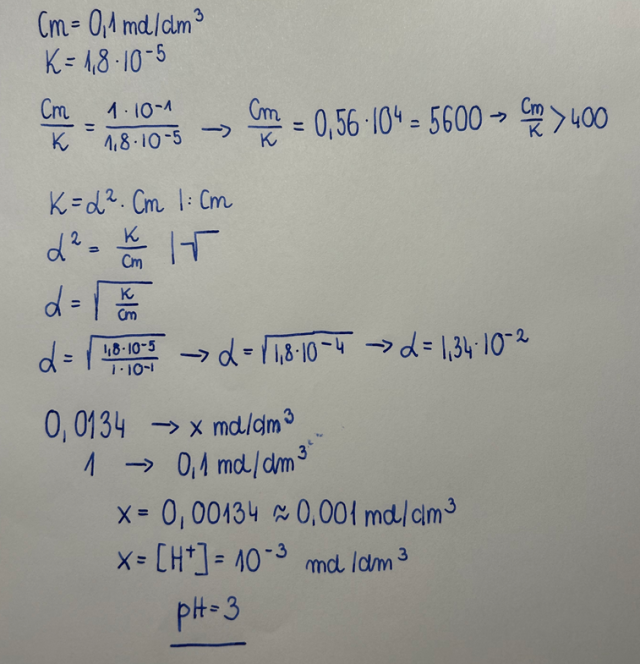 Cm = 0,1 mol/dm³
K = 1,8 · 10⁻⁵
Cm/K = 1 · 10⁻¹/1,8 · 10⁻⁵ → Cm/K = 0,56 · 10⁴ = 5600 → Cm/K > 400
K = α² · Cm |: Cm
α² = K/Cm |√
α = √(K/Cm)
α = √(1,8 · 10⁻⁵/1 · 10⁻¹) → α = √(1,8 · 10⁻⁴) → α = 1,34 · 10⁻²
0,0134 → x mol/dm³
1 → 0,1 mol/dm³
x = 0,00134 ≈ 0,001 mol/dm³
x = [H⁺] = 10⁻³ mol/dm³
pH = 3